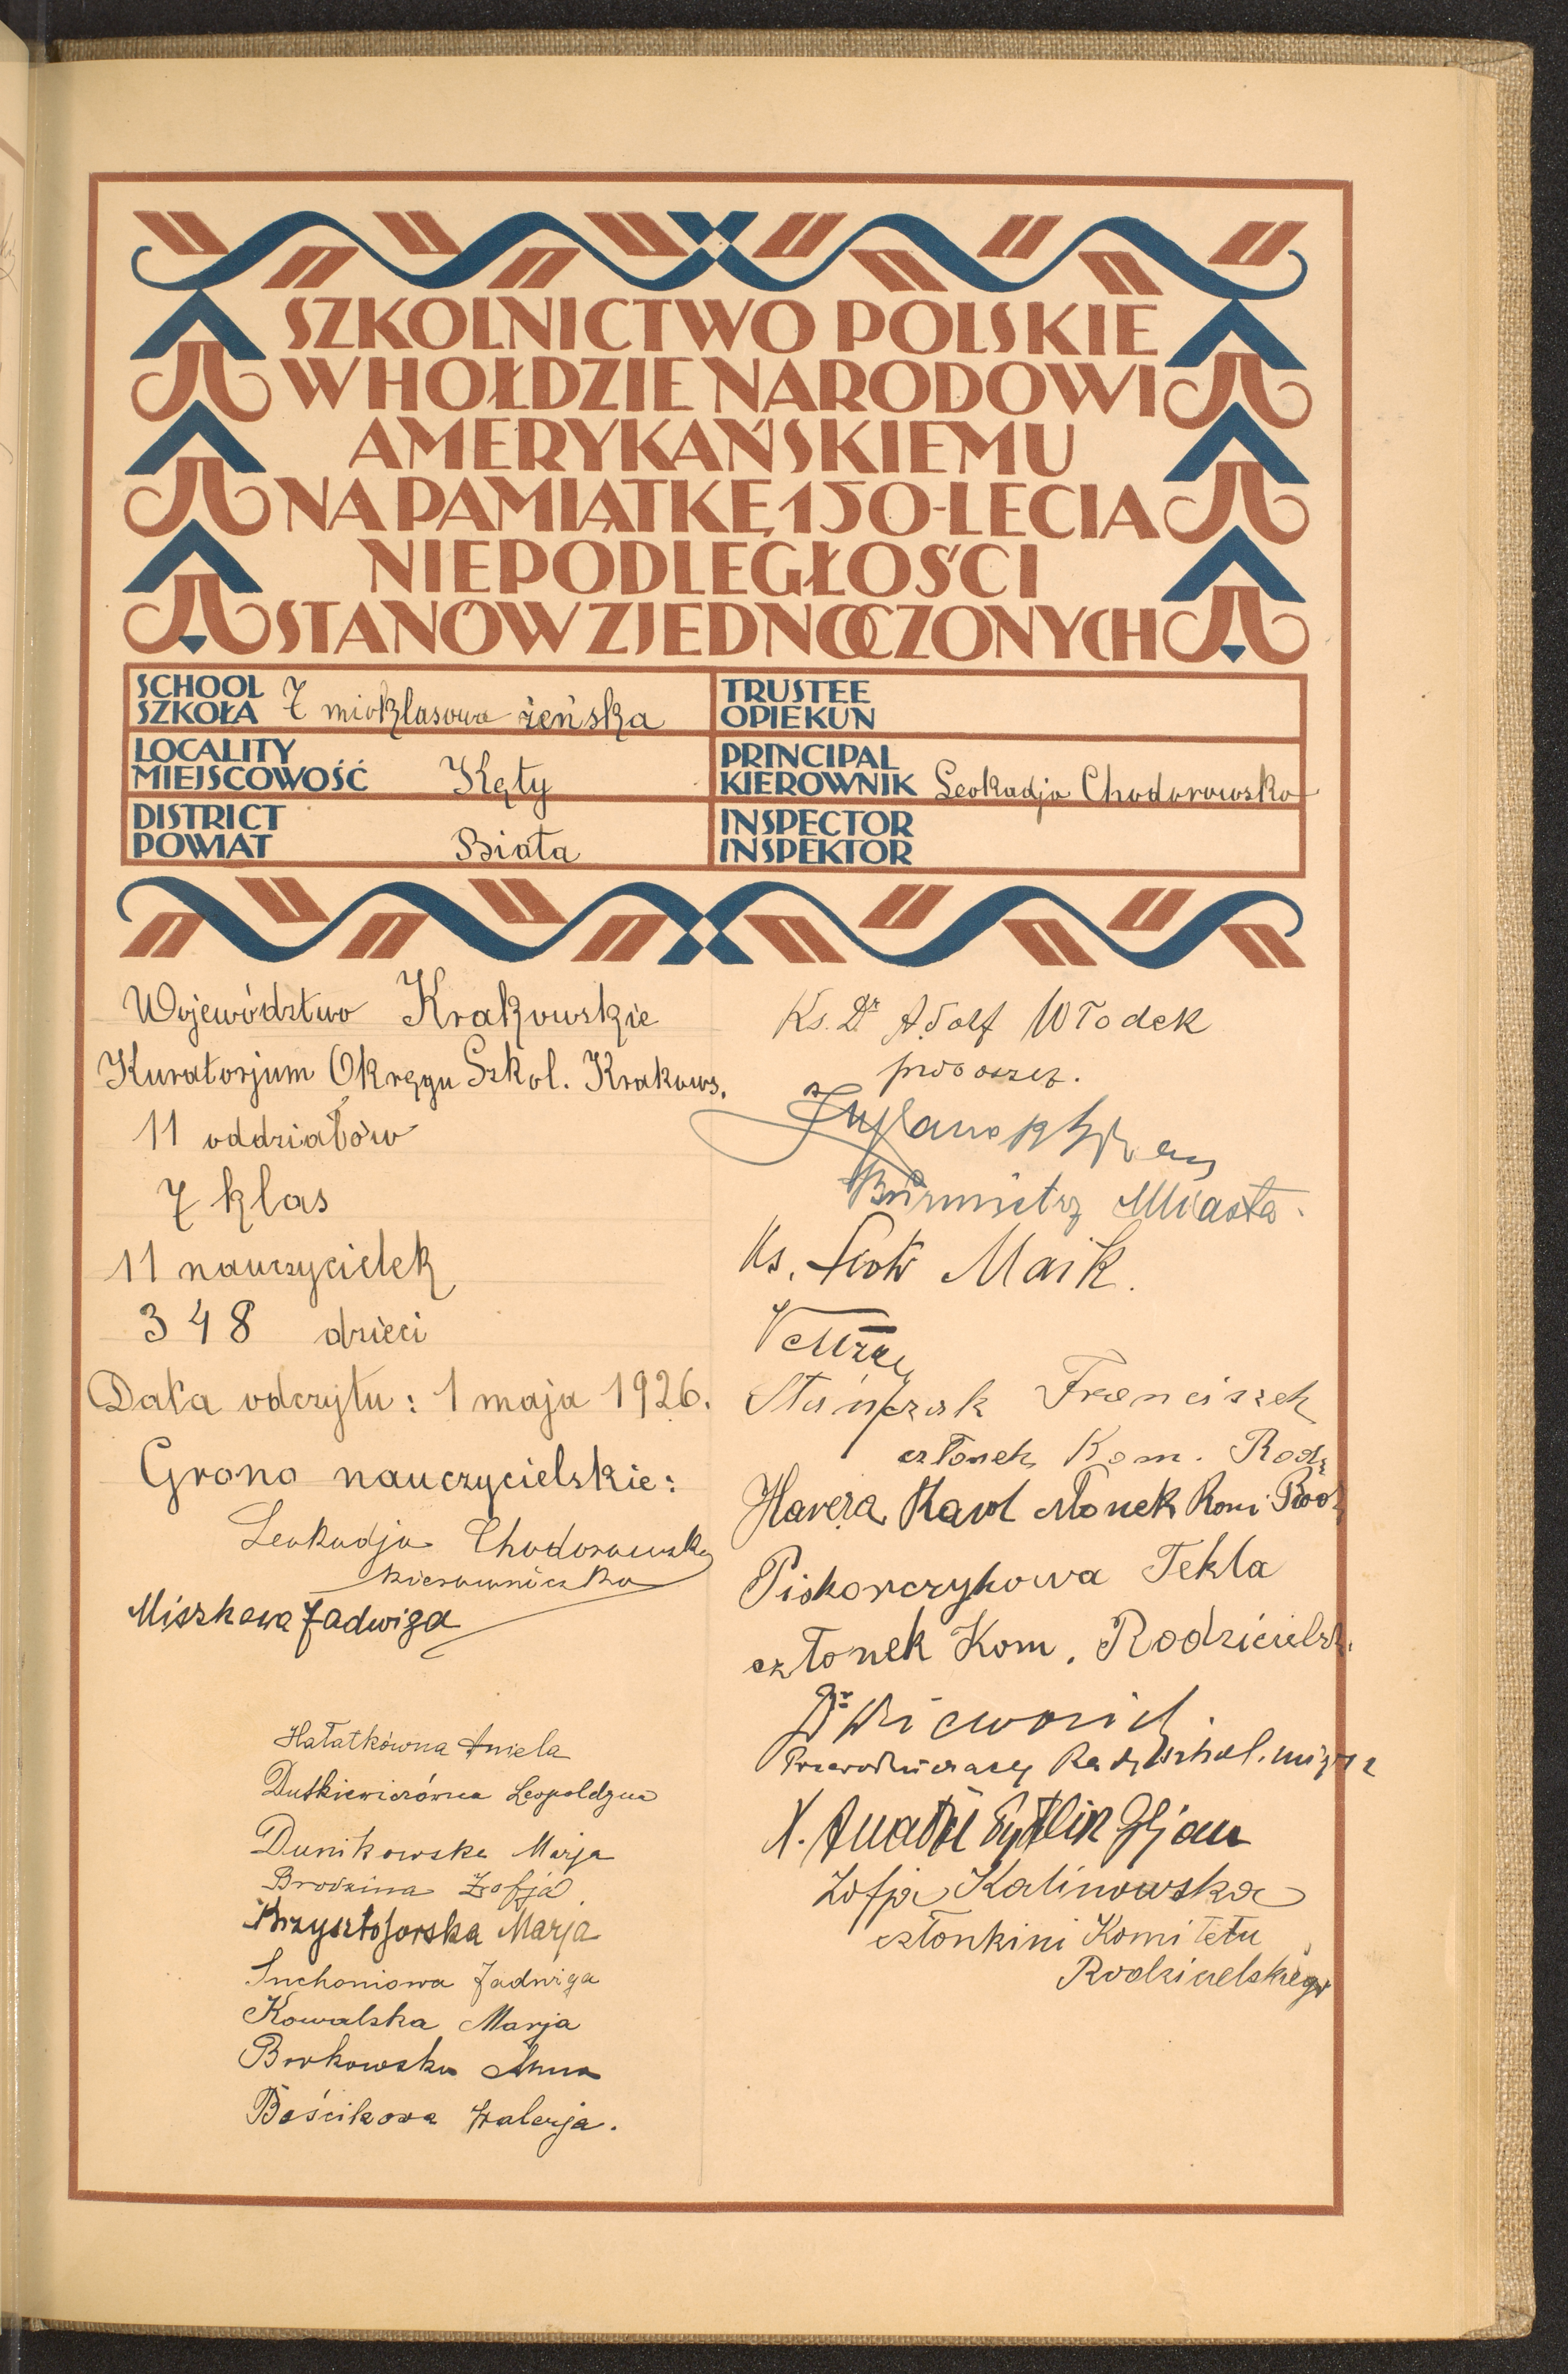 SZKOLNICTWO POLSKIE
W HOŁDZIE NARODOWI
AMERYKAŃSKIEMU
NA PAMIĄTKĘ 150-LECIA
NIEPODLEGŁOŚCI
STANÓW ZJEDNOCZONYCH
SCHOOL
SZKOŁA 7 mioklasowa żeńska
LOCALITY
MIEJSCOWOŚĆ Kęty
DISTRICT
POWIAT Biała
TRUSTEE
OPIEKUN
PRINCIPAL
KIEROWNIK Leokadja Chodorowska
INSPECTOR
INSPEKTOR
Województwo Krakowskie
Kuratorjum Okręgu Szkol. Krakows.
11 oddziałów
7 klas
11 nauczycielek
348 dzieci
Data odczytu: 1 maja 1926.
Grono nauczycielskie:
Leokadja Chodorowska
kierowniczka
Miszkowa Jadwiga
Hałatkówna Aniela
Dutkiewiczówna Leopoldyna
Dunikowska Marja
Brodzina Zofja
Krzysztoforska Marja
Suchoniowa Jadwiga
Kowalska Marja
Borkowska Anna
Bościkowa Walerja.
Ks. Dr Adolf Włodek
proboszcz.
Burmistrz Miasta.
Ks. Piotr Maik.
Stańczak Franciszek
członek Kom. Rodz
Karol członek Kom. Rodz
Piskorczykowa Tekla
członek Kom. Rodzicielsk.
Dr
Przewodniczący Rady szkol. miejsc
X.
Zofja Kalinowska
członkini Komitetu
Rodzicielskiego